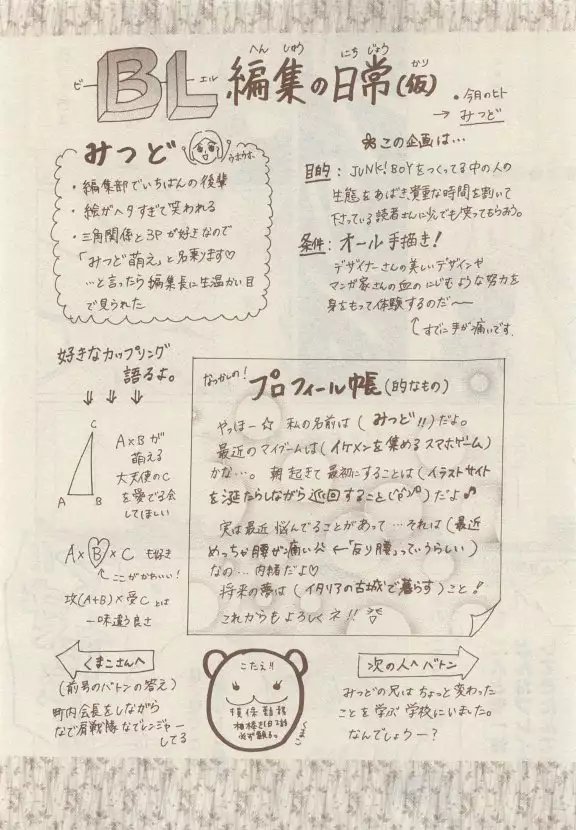 ビー BL エル 編集の日常(仮)
へん しゅう にち じょう かり
・今月のヒト
→ みつど
みつど
・編集部でいちばんの後輩
・絵がヘタすぎて笑われる
・三角関係と3Pが好きなので
「みつど萌え」と名乗ります♡
…と言ったら編集長に生温かい目
で見られた
この企画は…
目的:JUNK!BOYをつくってる中の人の
生態をあばき貴重な時間を割いて
下さっている読者さんに少しでも笑ってもらおう。
条件:オール手描き!
デザイナーさんの美しいデザインや
マンガ家さんの血のにじむような努力を
身をもって体験するのだ〜
すでに手が痛いです。
好きなカップリング
語るよ。
C
A B
A×Bが
萌える
大天使のC
を愛でる会
してほしい
A×B×C も好き
ここがかわいい!
攻(A+B)×受C とは
一味違う良さ
なつかしの!
プロフィール帳(的なもの)
やっほー☆ 私の名前は(みつど!!)だよ。
最近のマイブームは(イケメンを集めるスマホゲーム)
かな…。朝起きて最初にすることは(イラストサイト
を涎たらしながら巡回すること)だよ♪
実は最近悩んでることがあって…それは(最近
めっちゃ腰が痛い ←「反り腰」っていうらしい)
なの…内緒だよ♡
将来の夢は(イタリアの古城で暮らす)こと!
これからもよろしくネ!!
くまこさんへ
(前号のバトンの答え)
町内会長をしながら
なで肩戦隊なでレンジャー
してる
こたえ!!
くまこ
次の人へバトン
みつどの兄はちょっと変わった
ことを学ぶ学校にいました。
なんでしょうー?